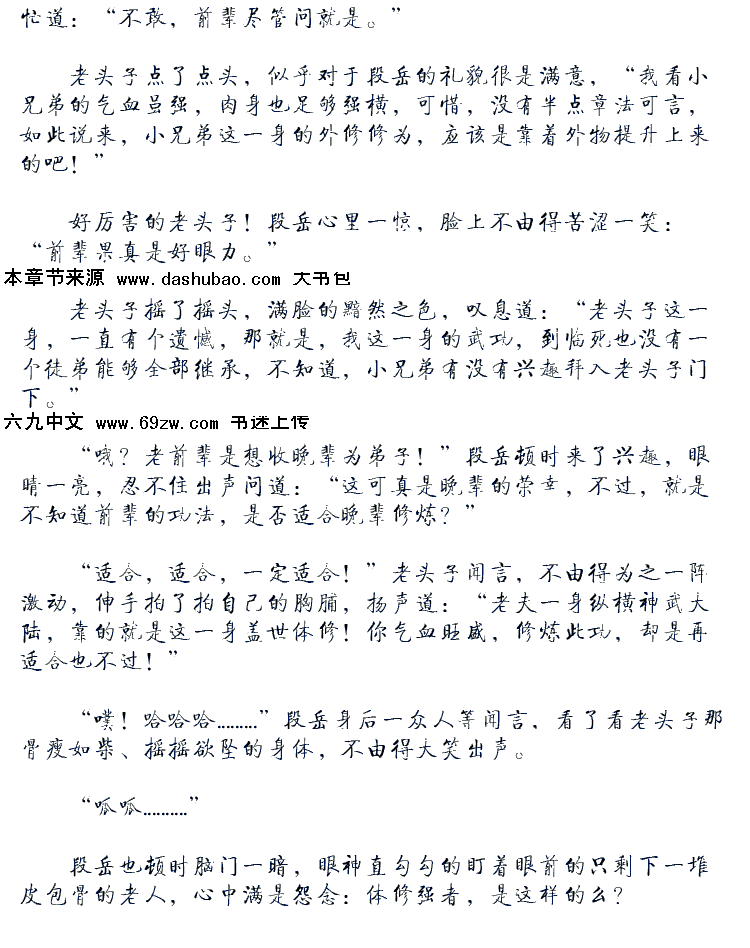 忙道：“不敢，前辈尽管问就是。”
老头子点了点头，似乎对于段岳的礼貌很是满意，“我看小
兄弟的气血虽强，肉身也足够强横，可惜，没有半点章法可言，
如此说来，小兄弟这一身的外修修为，应该是靠着外物提升上来
的吧！”
好厉害的老头子！段岳心里一惊，脸上不由得苦涩一笑：
“前辈果真是好眼力。”
本章节来源 www.dashubao.com 大书包
老头子摇了摇头，满脸的黯然之色，叹息道：“老头子这一
身，一直有个遗憾，那就是，我这一身的武功，到临死也没有一
个徒弟能够全部继承，不知道，小兄弟有没有兴趣拜入老头子门
下。”
六九中文 www.69zw.com 书迷上传
“哦？老前辈是想收晚辈为弟子！”段岳顿时来了兴趣，眼
睛一亮，忍不住出声问道：“这可真是晚辈的荣幸，不过，就是
不知道前辈的功法，是否适合晚辈修炼？”
“适合，适合，一定适合！”老头子闻言，不由得为之一阵
激动，伸手拍了拍自己的胸脯，扬声道：“老夫一身纵横神武大
陆，靠的就是这一身盖世体修！你气血旺盛，修炼此功，却是再
适合也不过！”
“噗！哈哈哈………”段岳身后一众人等闻言，看了看老头子那
骨瘦如柴、摇摇欲坠的身体，不由得大笑出声。
“呱呱………”
段岳也顿时脑门一暗，眼神直勾勾的盯着眼前的只剩下一堆
皮包骨的老人，心中满是怨念：体修强者，是这样的么？